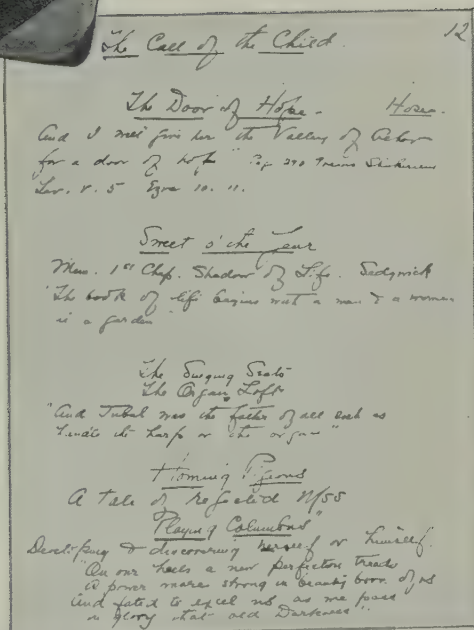 12
The Call of the Child.
The Door of Hope. Hosea.
And I will give her the Valley of Achor
for a door of hope" Pg 290
Lev. V. 5 Ezra 10. 11.
Sweet o' the Year
1st Chap. Shadow of Life. Sedgwick
"The book of life begins with a man & a woman
in a garden"
The Singing Seats
The Organ Loft
"And Jubal was the father of all such as
handle the harp or the organ"
Homing Pigeons
A tale of rejected MSS
Playing Columbus"
Developing & discovering herself or himself.
"On our heels a new perfection treads
A power more strong in beauty born of us
And fated to excel us as we pass
in glory that old Darkness"